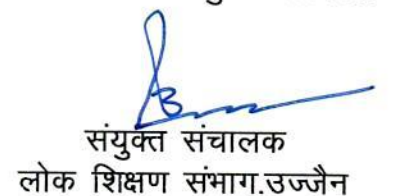 संयुक्त संचालक
लोक शिक्षण संभाग.उज्जैन